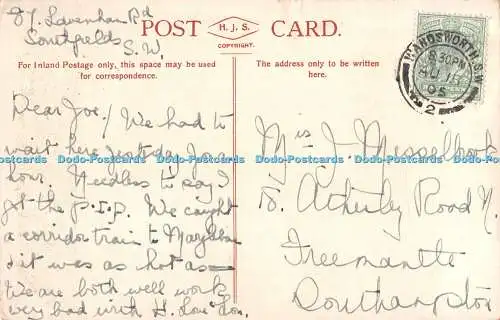 87 Lavenham Rd
Southfields
S.W.
POST CARD.
H.J.S.
COPYRIGHT.
For Inland Postage only, this space may be used
for correspondence.
The address only to be written
here.
WANDSWORTH. S.W.
8.30PM
AU 1
05
2
Dear Joe / We had to
wait here yesterday for
hour. Needless to say I
got the p.i.p. We caught
a corridor train to
& it was as hot as
We are both well
very bad with
Miss J. Messelbrook
18. Atherley Road N.
Freemantle
Southampton
Dodo-Postcards Dodo-Postcards Dodo-Postcards Dodo-Postcards Dodo-Postcards